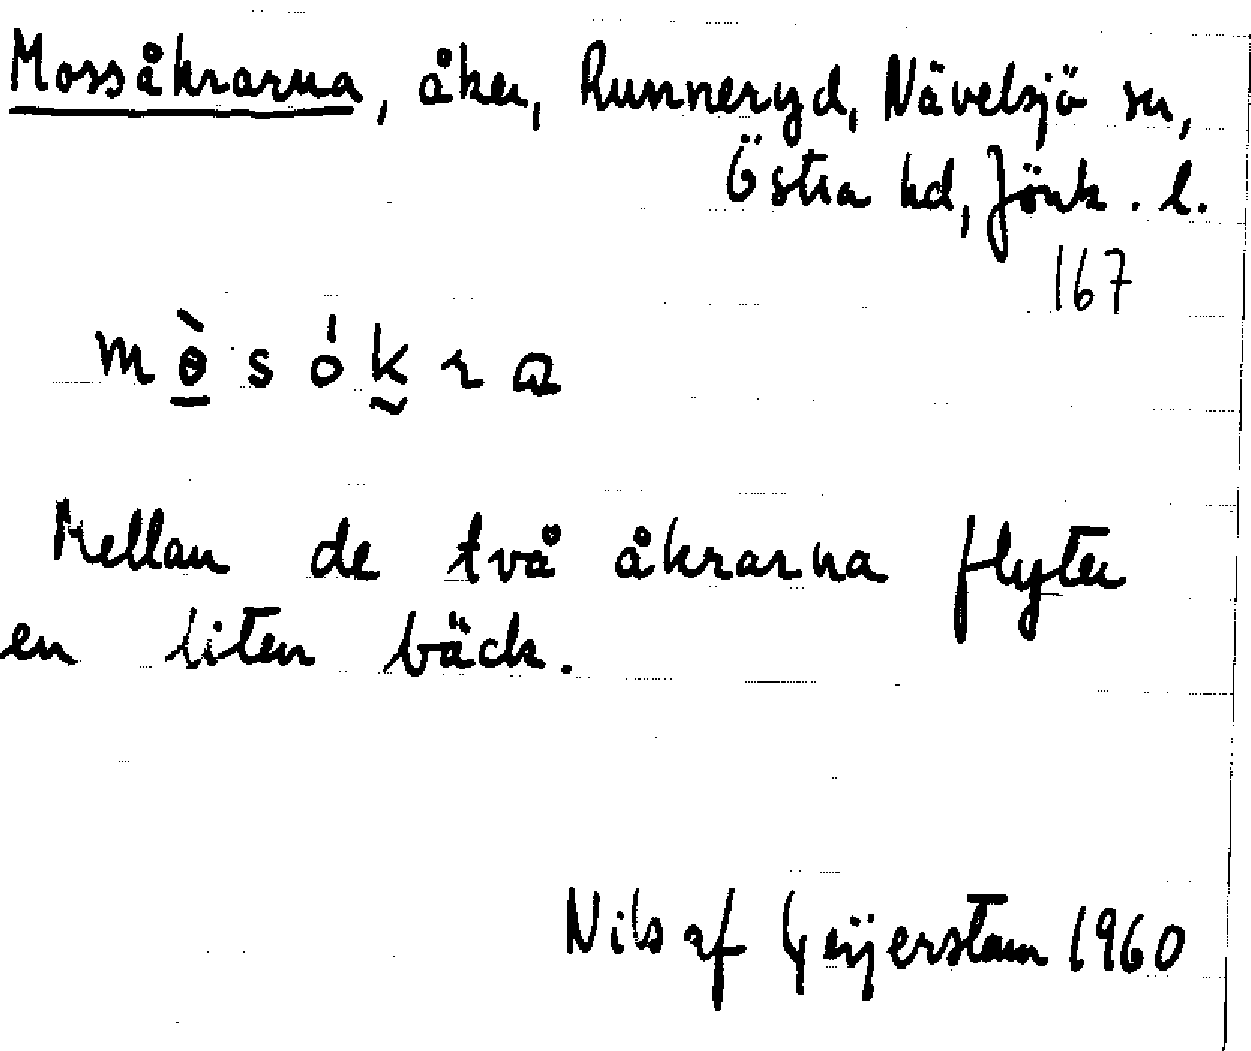 Mossåkrarna, åker, Runneryd, Nävelsjö sn,
Östra hd, Jönk. l.
167
m ɵ̠̀ s ó k̰ r a
Mellan de två åkrarna flyter
en liten bäck.
Nils af Geijerstam 1960